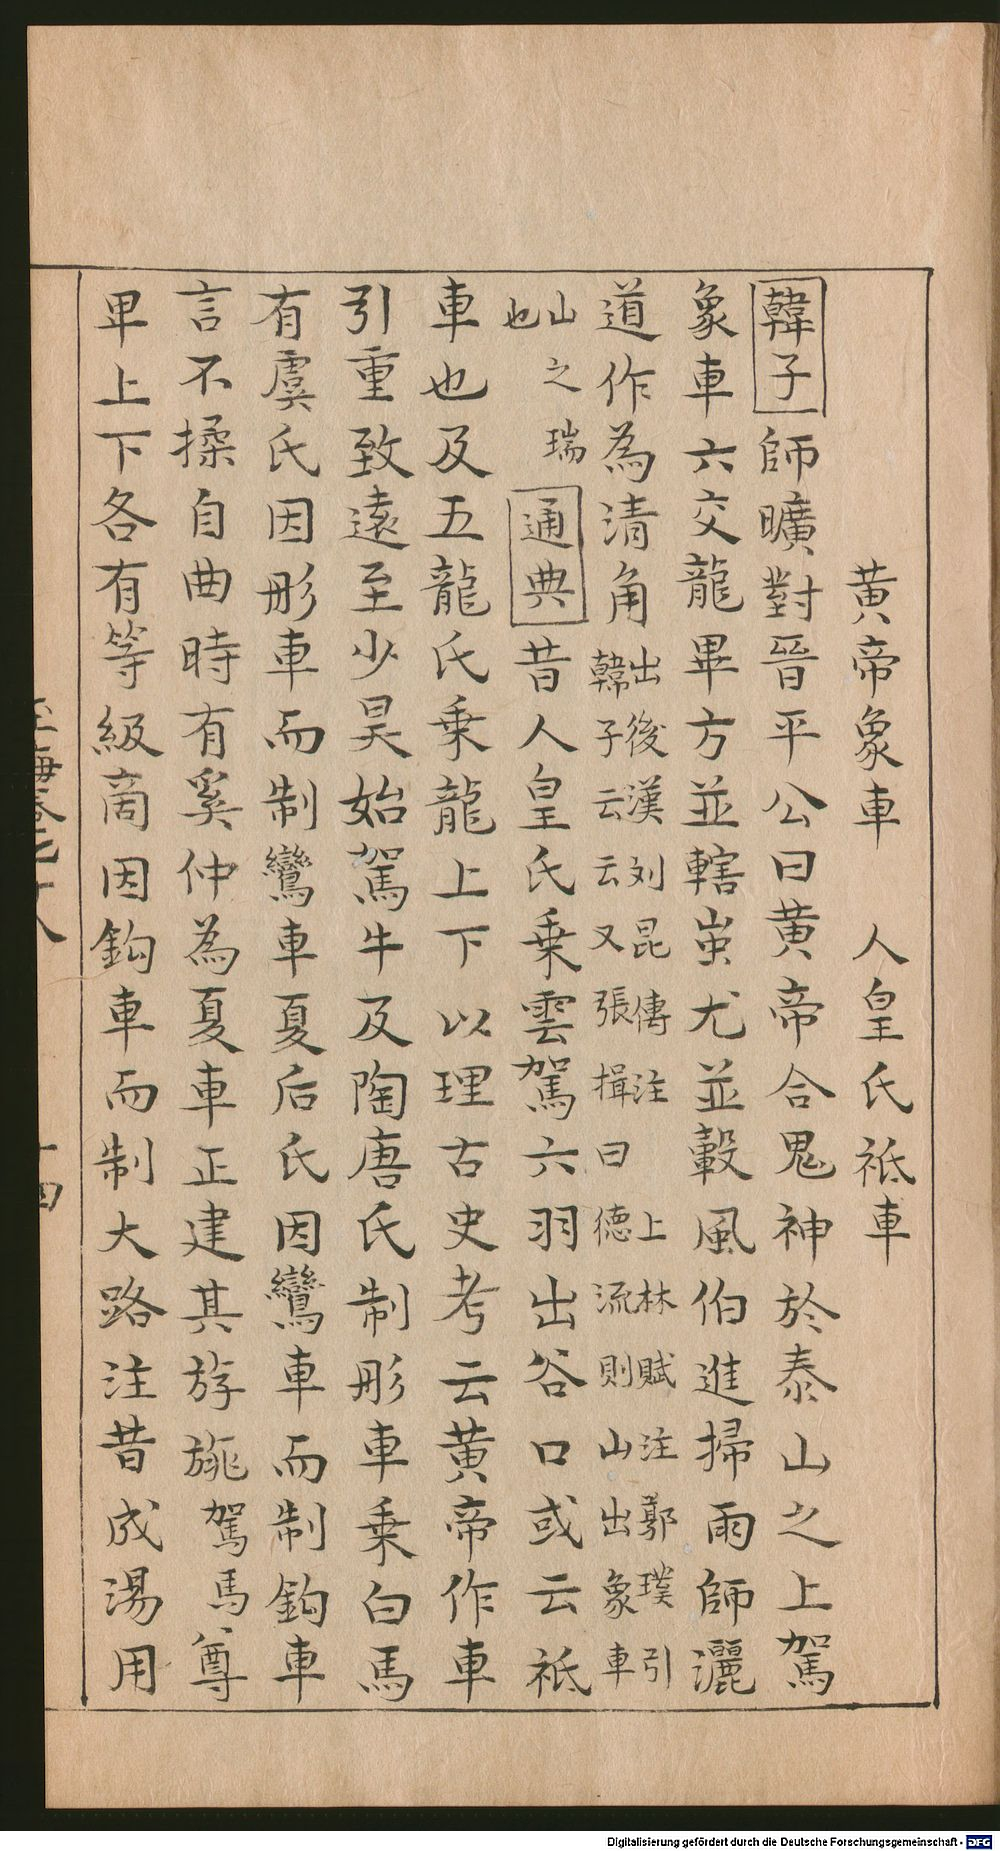 黃帝象車　人皇氏祗車
韓子師曠對晉平公曰黃帝合鬼神於泰山之上駕
象車六交龍畢方並轄蚩尤並轂風伯進掃雨師灑
道作為清角出後漢刘昆傳注上林賦注鄣璞引韓子云云又張揖曰德流則山出象車
山之瑞也通典昔人皇氏乗雲駕六羽出谷口或云祗
車也及五龍氏乗龍上下以理古史考云黃帝作車
引重致遠至少昊始駕牛及陶唐氏制彤車乗白馬
有虞氏因彤車而制鸞車夏后氏因鸞車而制鈎車
言不揉自曲時有奚仲為夏車正建其斿旐駕馬尊
卑上下各有等級商因鈎車而制大路注昔成湯用
玉海卷七十八
十四
Digitalisierung gefördert durch die Deutsche Forschungsgemeinschaft - DFG